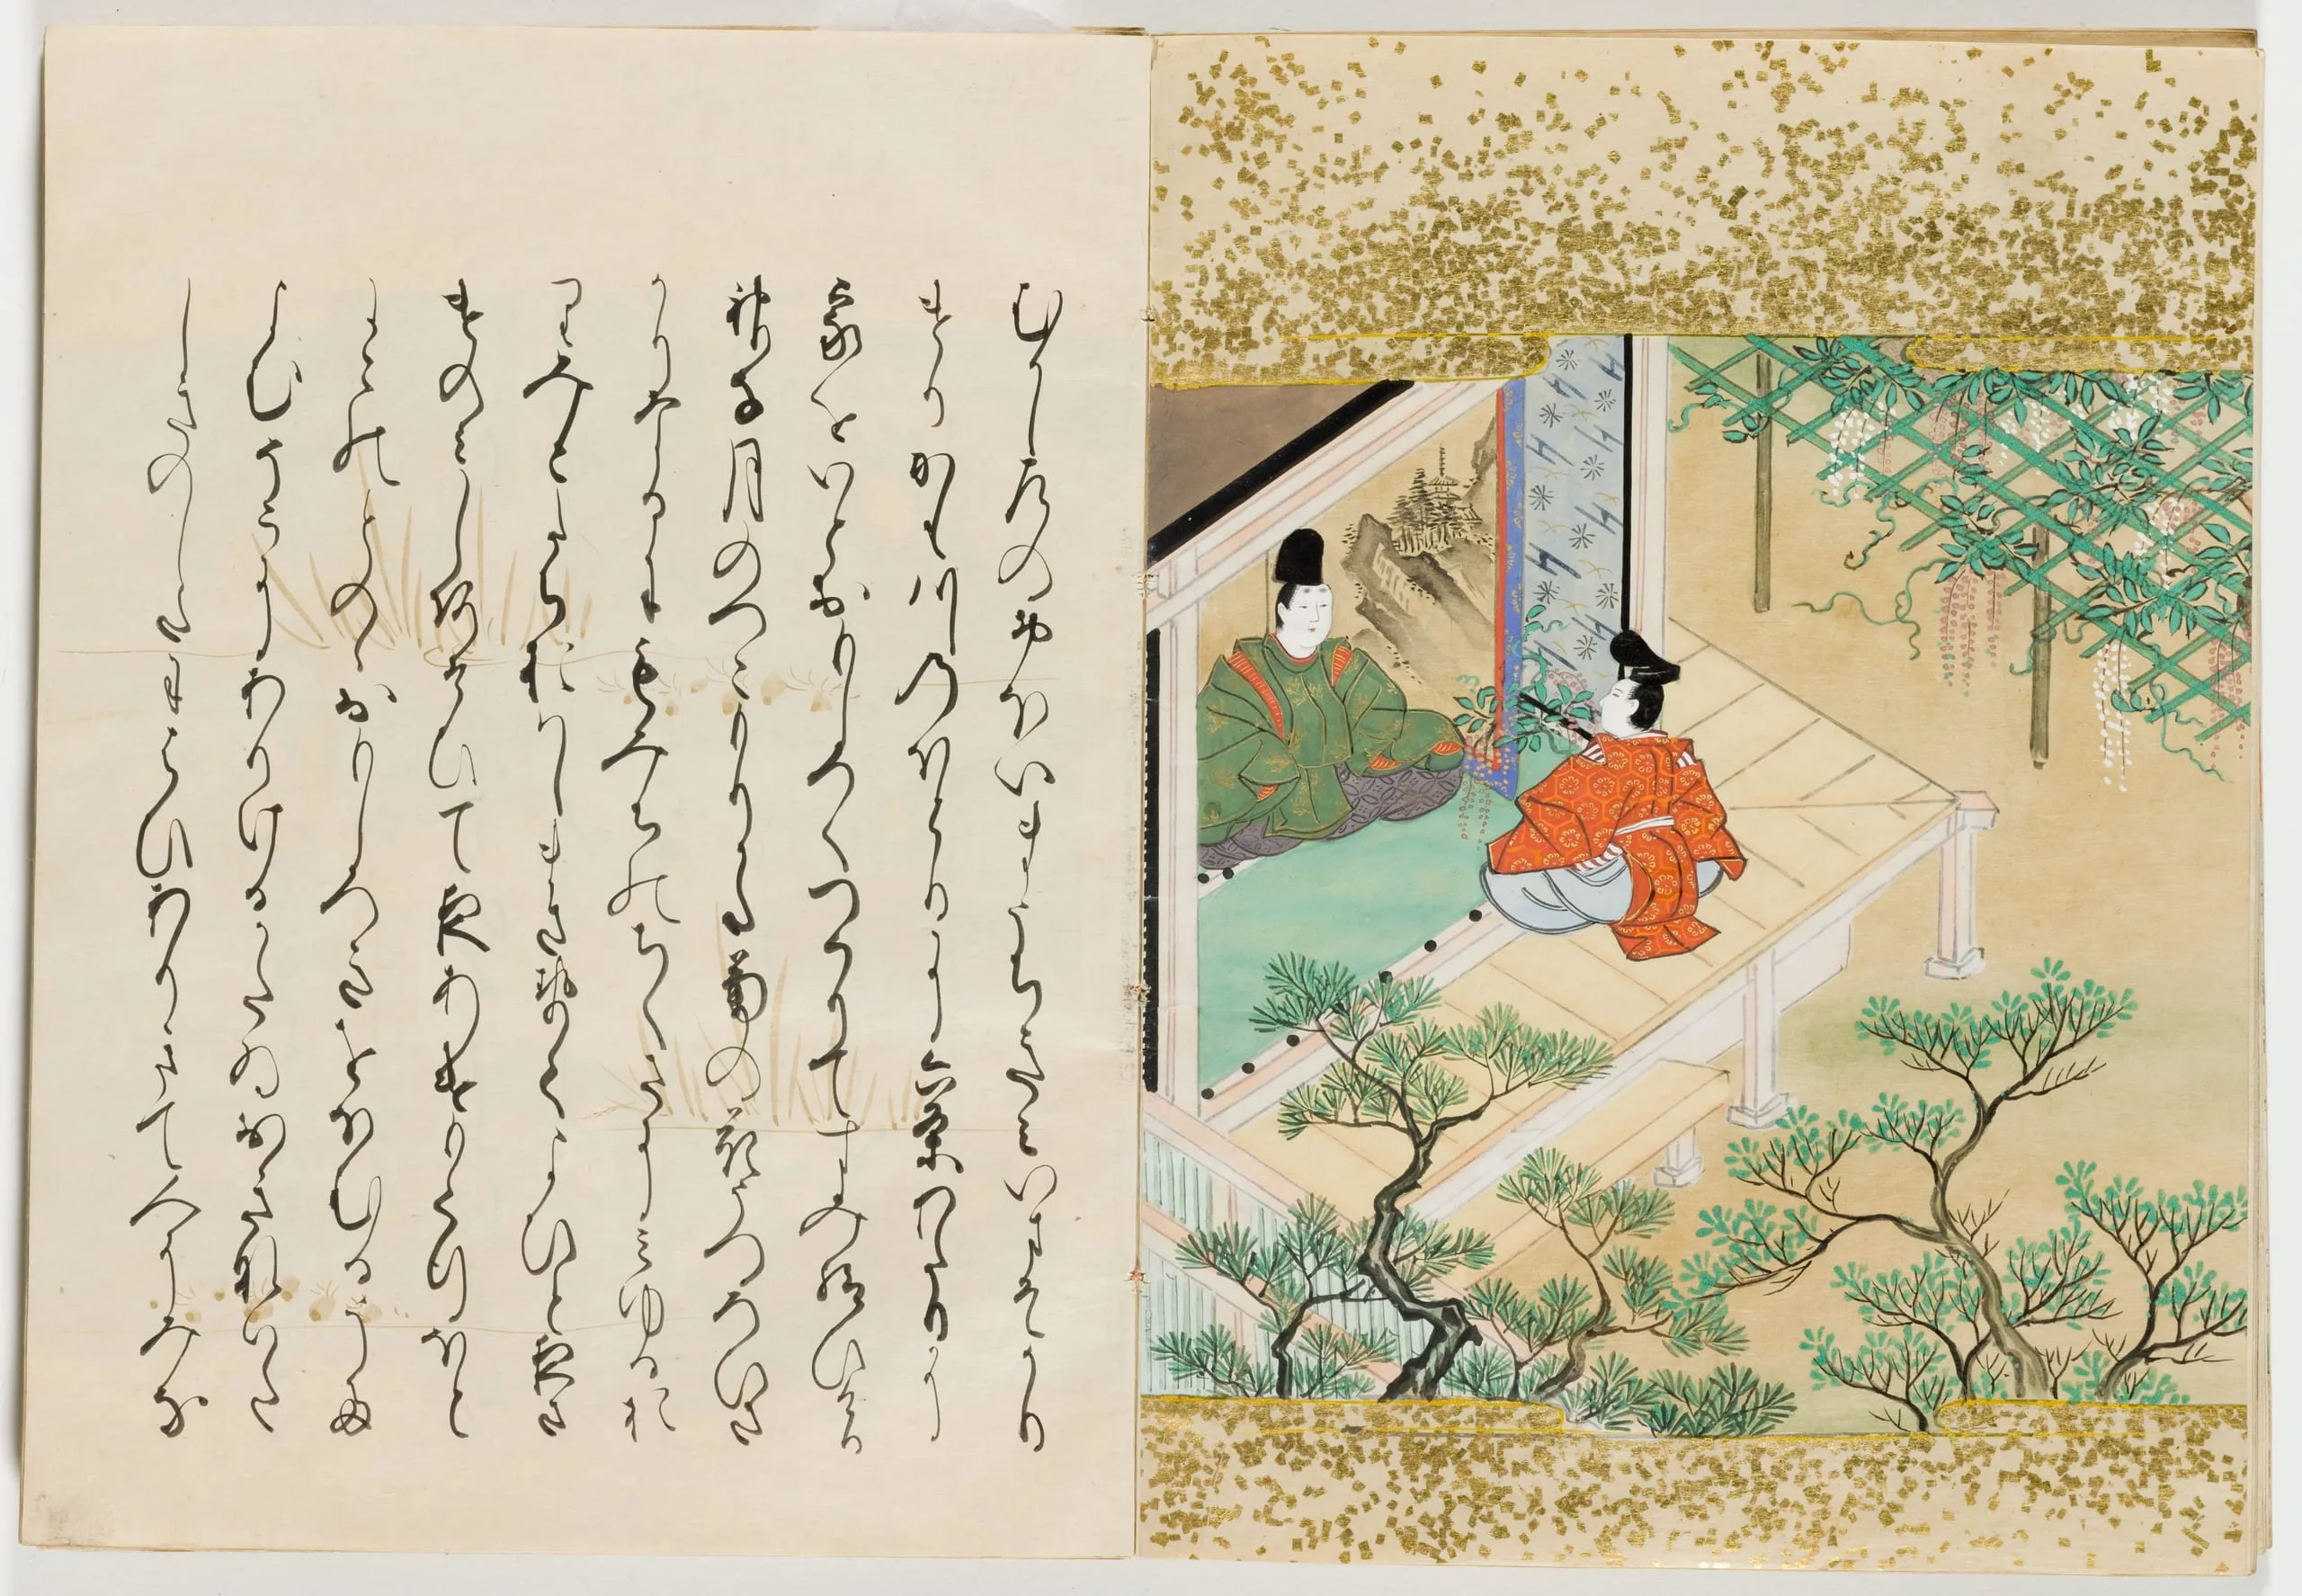 むかし左のおほいまうちきみいまそかり
けりかも川のほとりに六条わたりに
家をいとおもしろくつくりてすみ給ひけり
神な月のつこもりかた菊の花うつろひさ
かりなるにもみちのちくさにみゆるお
りみこたちおはしまさせて夜ひと夜さ
けのみしあそひて夜あけもてゆくほと
にこのとののおもしろきをほむるうた
よむそこにありけるかたゐおきないた
しきのしたにはひありきて人にみな